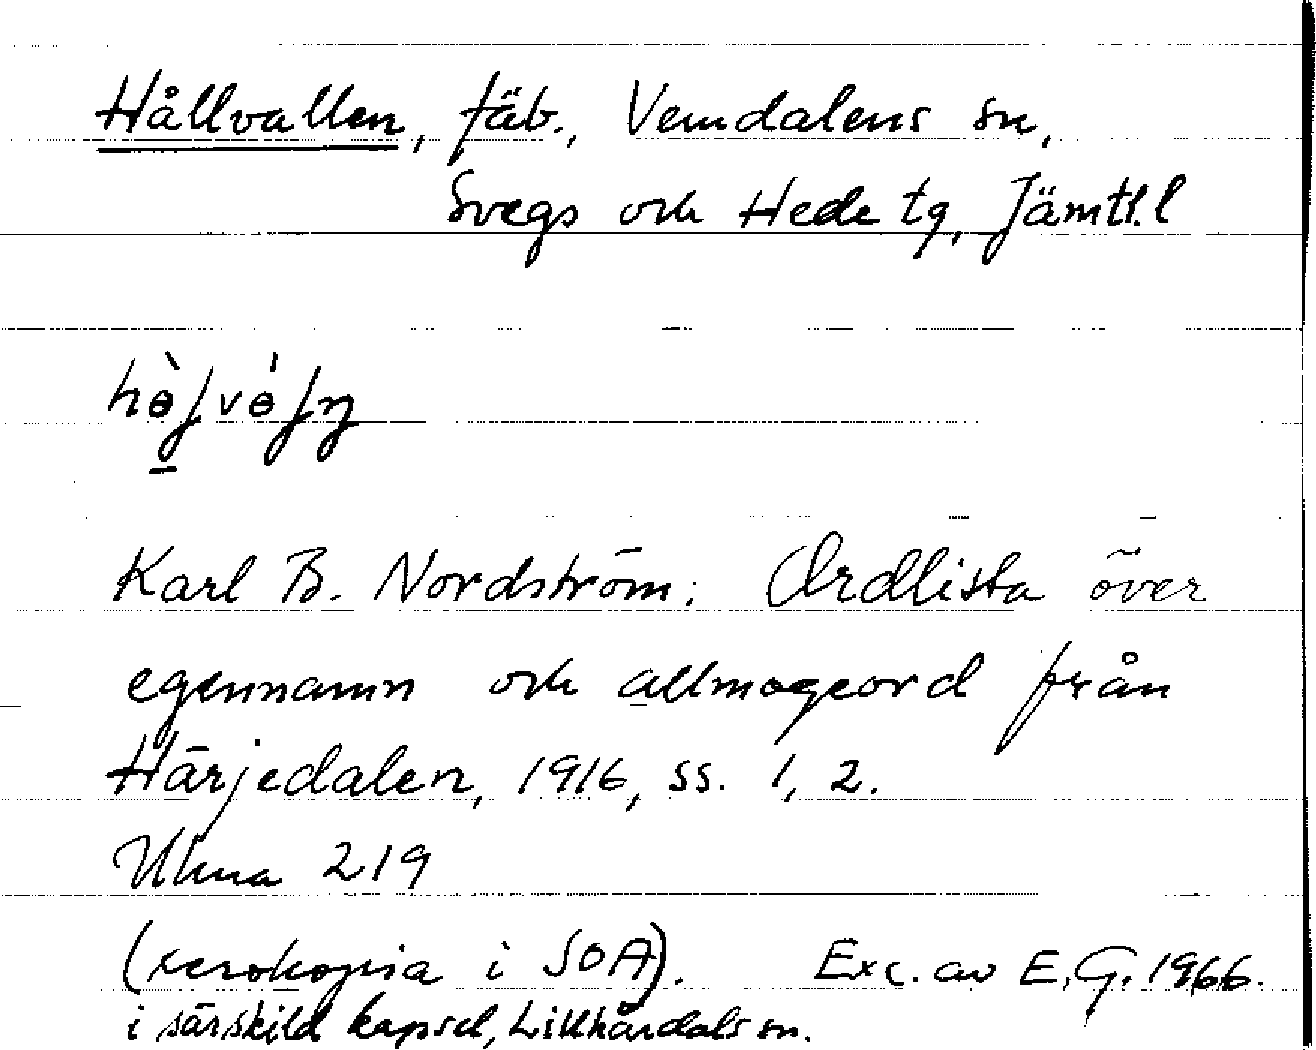 Hållvallen, fäb., Vemdalens sn,
Svegs och Hede tg, Jämtl.l
Karl B. Nordström: Ordlista över
egennamn och allmogeord från
Härjedalen, 1916, ss. 1, 2.
Ulma 219
(xerokopia i SOA). Exc. av E.G. 1966.
i särskild kapsel, Lillhärdals sn.